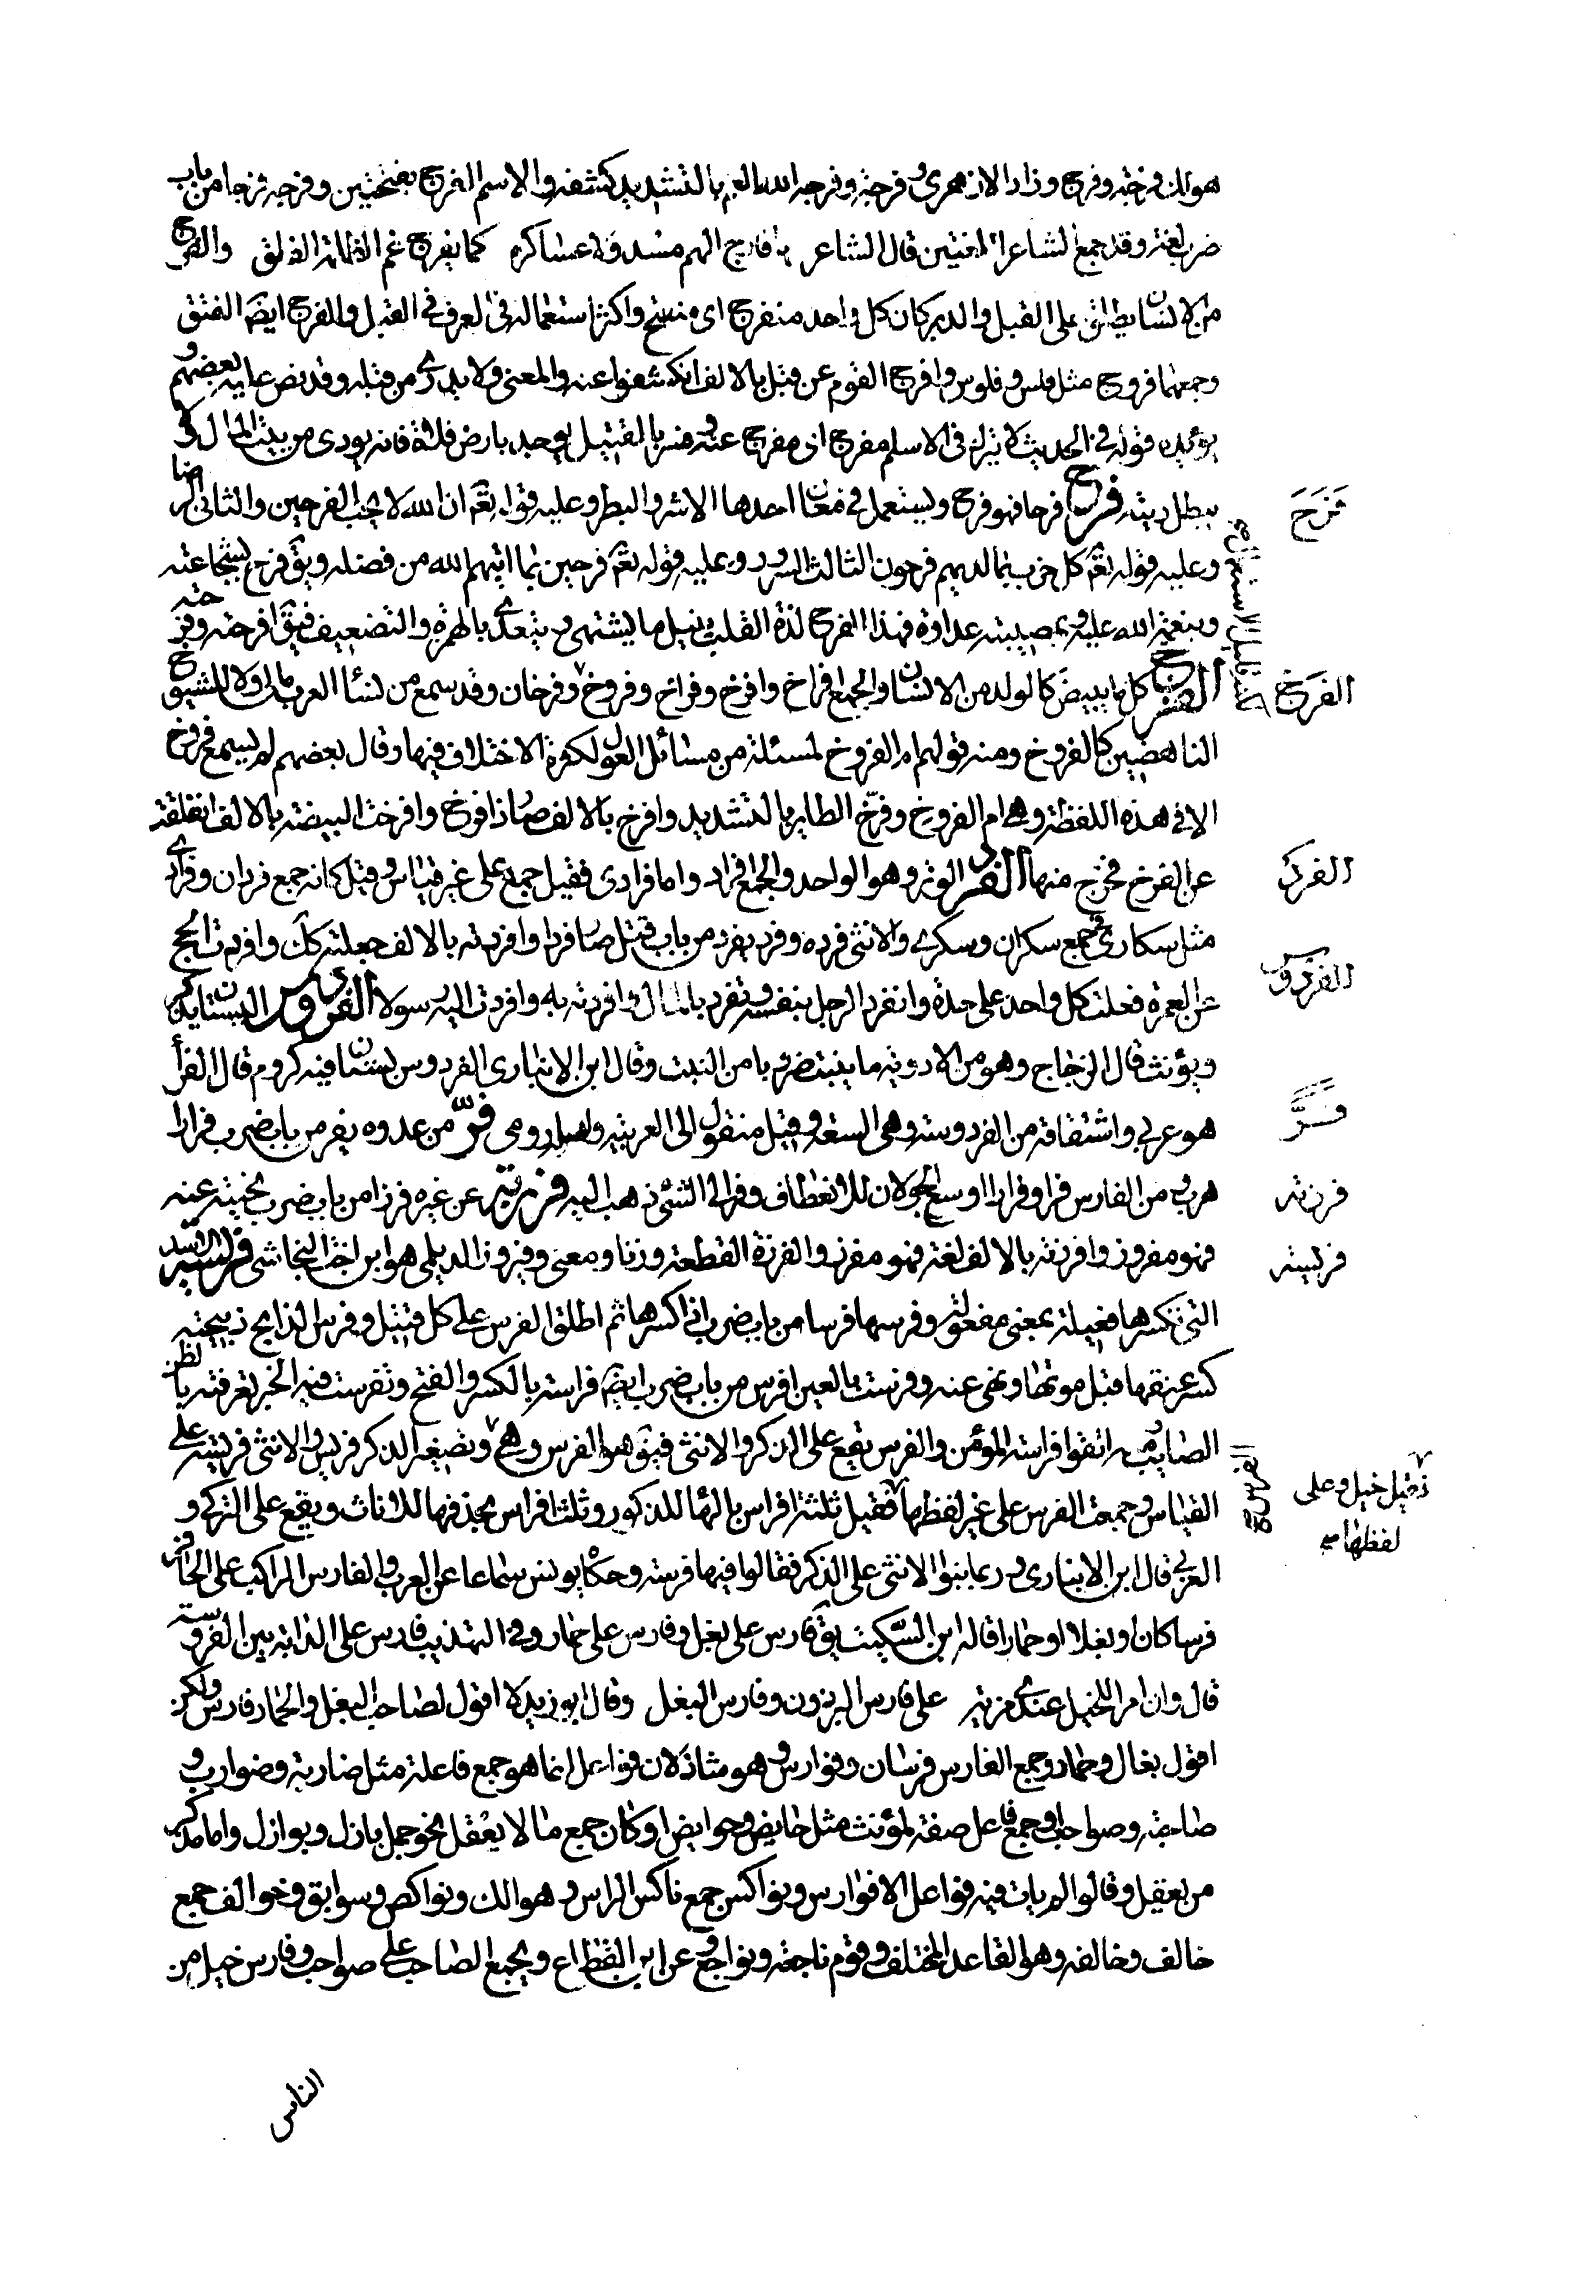 هوالك وفرجته وفرج وزاد الازهرى وفرجة وفرجه الله الغم بالتشديد كشفه والاسم الفرج بفتحتين وفرجه فرجا من باب
ضرب لغة وقد جمع الشاعر اللغتين قال الشاعر يا فارج الهم مسدول عساكره كما يفرج غم الظلمة الفلق والفرج
من الانسان يطلق على القبل والدبر كان كل واحد منفرج اى منفتح واكثر استعماله فى العرف فى القبل والفرج ايضا الفتق
وجمعها فروج مثل فلس وفلوس وافرج القوم عن قتيل بالالف انكشفوا عنه والمعنى ولا يدرى من قتله وقد نص عليه بعضهم و
يؤيده قوله فى الحديث لا يترك فى الاسلام مفرج اى مفرج عنه وفسر بالقتيل يوجد بارض فلاة فانه يودى من بيت المال ولا
يبطل ديته فرح فرحا فهو فرح ويستعمل فى معان احدها الاشر والبطر وعليه قوله تعم ان الله لا يحب الفرحين والثانى الرضا
وعليه قوله تعم كل حزب بما لديهم فرحون الثالث السرور وعليه قوله تعم فرحين بما اتيهم الله من فضله ويق فرح بشجاعته
وبنعمة الله عليه وبمصيبة عداوة فهذا الفرح لذة القلب بنيل ما يشتهى ويتعدى بالهمزة والتضعيف فيق افرحته وفرحته
الفرخ كل ما يبيض كالولد من الانسان والجمع افراخ وافرخ وفراخ وفروخ وفرخان وقد سمع من نساء العرب مالك اولاد الشيوخ
الناهضين كالفروخ ومنه قولهم ام الفروخ لمسئلة من مسائل العول لكثرة الاختلاف فيها وقال بعضهم لم يسمع فروخ
الا فى هذه اللفظة وهى ام الفروخ وفرخ الطاير بالتشديد وافرخ بالالف صار ذا فرخ وافرخت البيضة بالالف انفلقت
عن الفرخ فخرج منها الفرد الوتر وهو الواحد والجمع افراد واما فرادى فقيل جمع على غير قياس وقيل كانه جمع فردان وفردى
مثل سكارى فى جمع سكران وسكرى والانثى فردة وفرد يفرد من باب قتل صار فردا وافردته بالالف جعلته كك وافردت الحج
عن العمرة فعلت كل واحد على حدة وانفرد الرجل بنفسه وتفرد بالمال وافردته به وافردت اليه رسولا الفردوس البستان يذكر
ويؤنث قال الزجاج وهو من الاودية ما ينبت ضروبا من النبت وقال ابن الانبارى الفردوس بستان فيه كروم قال الفرأ
هو عربى واشتقاقه من الفردوسة وهى السعة وقيل منقول الى العربية واصله رومى فر من عدوه يفر من باب ضرب فرارا
هرب ومن الفارس فرا وفرارا اوسع الجولان للانعطاف وفر الى الشئ ذهب اليه فرزته عن غيره فرزا من باب ضرب نحيته عنه
فهو مفروز وافرزته بالالف لغة فهو مفرز والفرزة القطعة وزنا ومعنى وفيروز الديلمى هو ابن اخت النجاشى فريسة الاسد
التى تكسرها فعيلة بمعنى مفعولة وفرسها فرسا من باب ضرب اذا كسرها ثم اطلق الفرس على كل قتيل وفرس الذابح ذبيحته
كسر عنقها قبل موتها ونهى عنه وفرست بالعين افرس من باب ضرب ايضا فراسة بالكسر والفتح وتفرست فيه الخير تعرفته بالظن
الصايب ومنه اتقوا فراسة المؤمن والفرس يقع على الذكر والانثى فيق هو الفرس وهى وتصغير الذكر فريس والانثى فريسة على
القياس وجمعت الفرس على غير لفظها فقيل ثلثة افراس بالهاء للذكور وثلث افراس بحذفها للاناث ويقع على التركى و
العربى قال ابن الانبارى وربما بنوا الانثى على الذكر فقالوا فيها فرسة وحكاه يونس سماعا عن العرب والفارس الراكب على الحافر
فرسا كان او بغلا او حمارا قاله ابن السكيت يق فارس على بغل وفارس على حمار وفى التهذيب فارس على الدابة بين الفروسة
قال وان امرا للخيل عندى مزية على فارس البرذون وفارس البغل وقال ابو زيد لا اقول لصاحب البغل والحمار فارس ولكن
اقول بغال وحمار وجمع الفارس فرسان وفوارس وهو شاذ لان فواعل انما هو جمع فاعلة مثل ضاربة وضوارب و
صاحبة وصواحب وجمع فاعل صفة لمؤنث مثل حايض وحوايض او كان جمع ما لا يعقل نحو جمل بازل وبوازل واما مذكر
من يعقل وقالوا لم يات فيه فواعل الا فوارس ونواكس جمع ناكس الراس وهوالك ونواكص وسوابق وخوالف جمع
خالف وخالفه وهو القاعد المتخلف وقوم ناجعة ونواجع وعن ابن القطاع ويجمع الصاحب على صواحب وفارس خيل من
الناس
فَرَحَ
الفرخ
الفرد
الفردوس
فَرَّ
فرزته
فريسة
فقيل خيل وعلى
لفظها